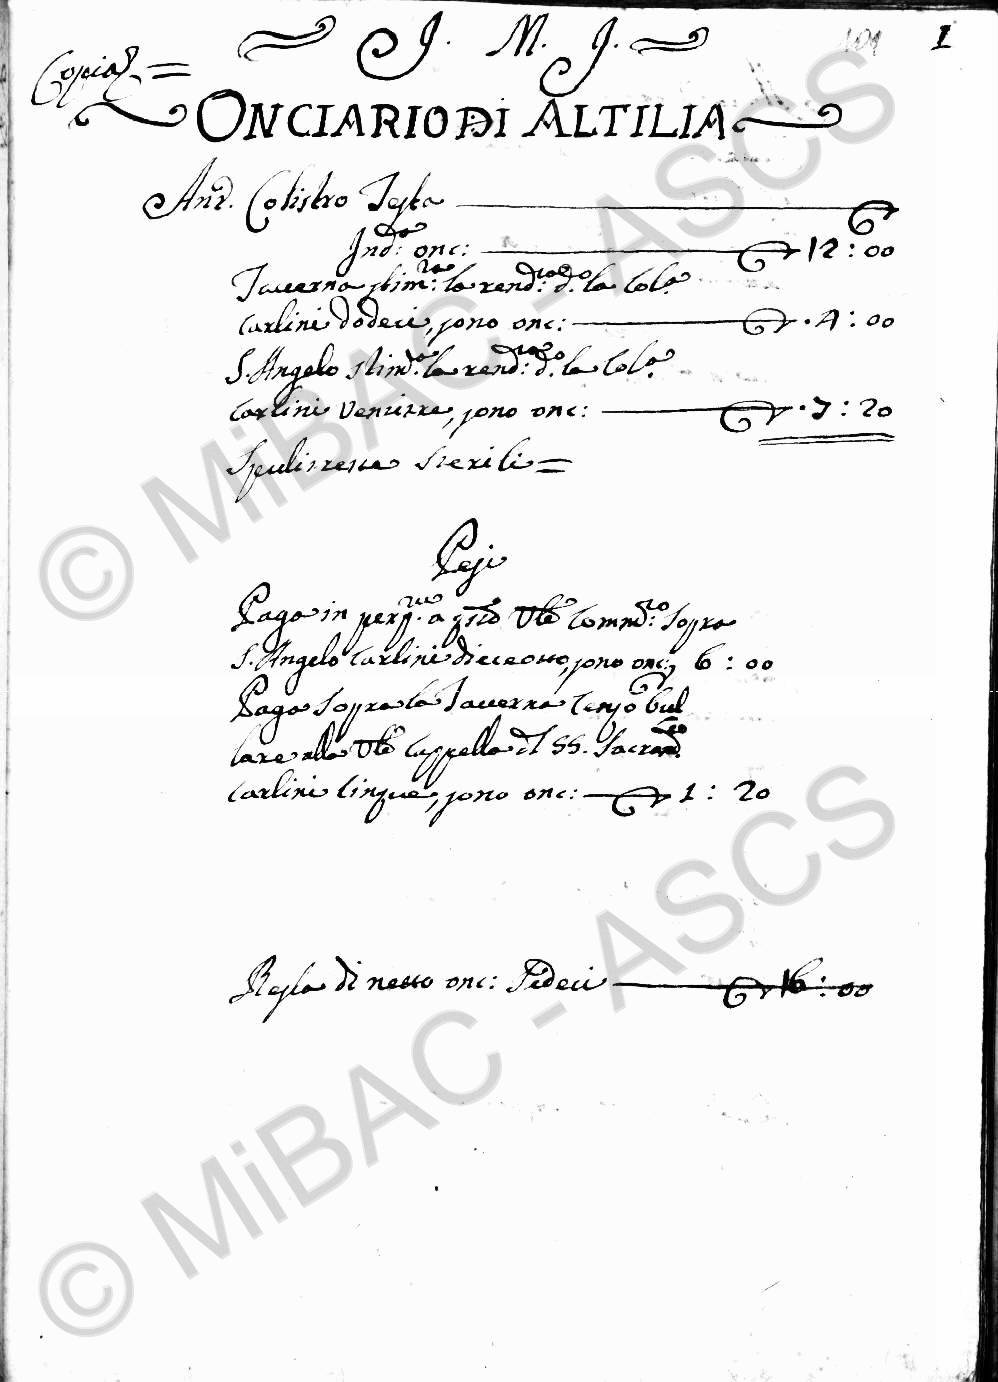 J. M. J.
101 1
Copia =
ONCIARIO DI ALTILIA
And. Colistro Testa
Ind.a onc: 12 : 00
Taverna stim.ta la rend.ta d. la Col.a
Carlini dodeci, sono onc: 4 : 00
S. Angelo stim.o la rend.ta d. la Col.a
Carlini ventitre, sono onc: 7 : 20
sterili =
Pesi
Paga in perp. a q.sta Ut.e Comm.tà sopra
S. Angelo Carlini dieceotto, sono onc: 6 : 00
Paga sopra la Taverna Censo bul
lare alla Cappella del SS. Sacram.to
Carlini Cinque, sono onc: 1 : 20
Resta di netto onc: Sideci 16 : 00
© MiBAC - ASCS
© MiBAC - ASCS